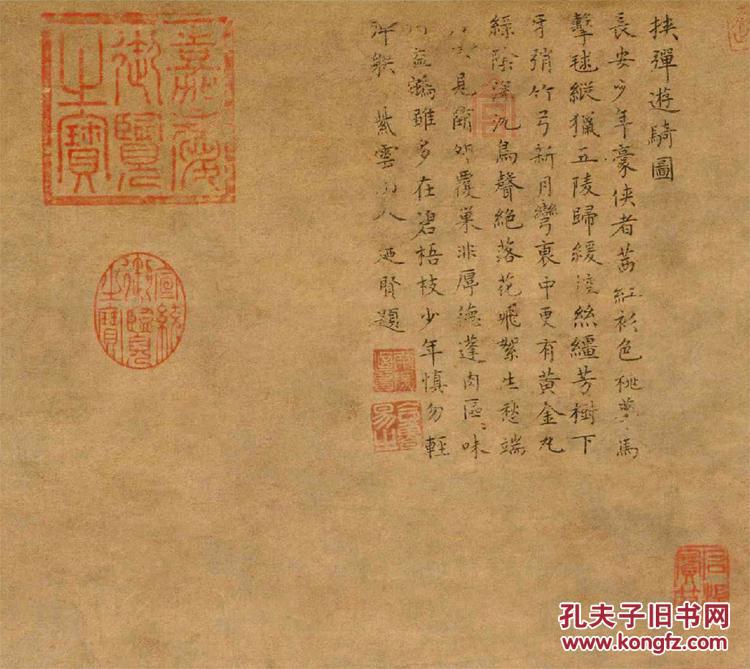 挟彈遊騎圖
長安少年豪俠者茜紅衫色桃馬
擊毬縱獵五陵歸緩控絲繮芳樹下
牙弰竹弓新月彎裏中更有黃金丸
綠陰深沉鳥聲絕落花飛絮生愁端
見覆巢非厚德蓬肉區〻味
雖多在碧梧枝少年慎勿輕
紫雲山人迺賢題
嘉慶御覽之寶
宣統御覽之寶
孔夫子旧书网
www.kongfz.com